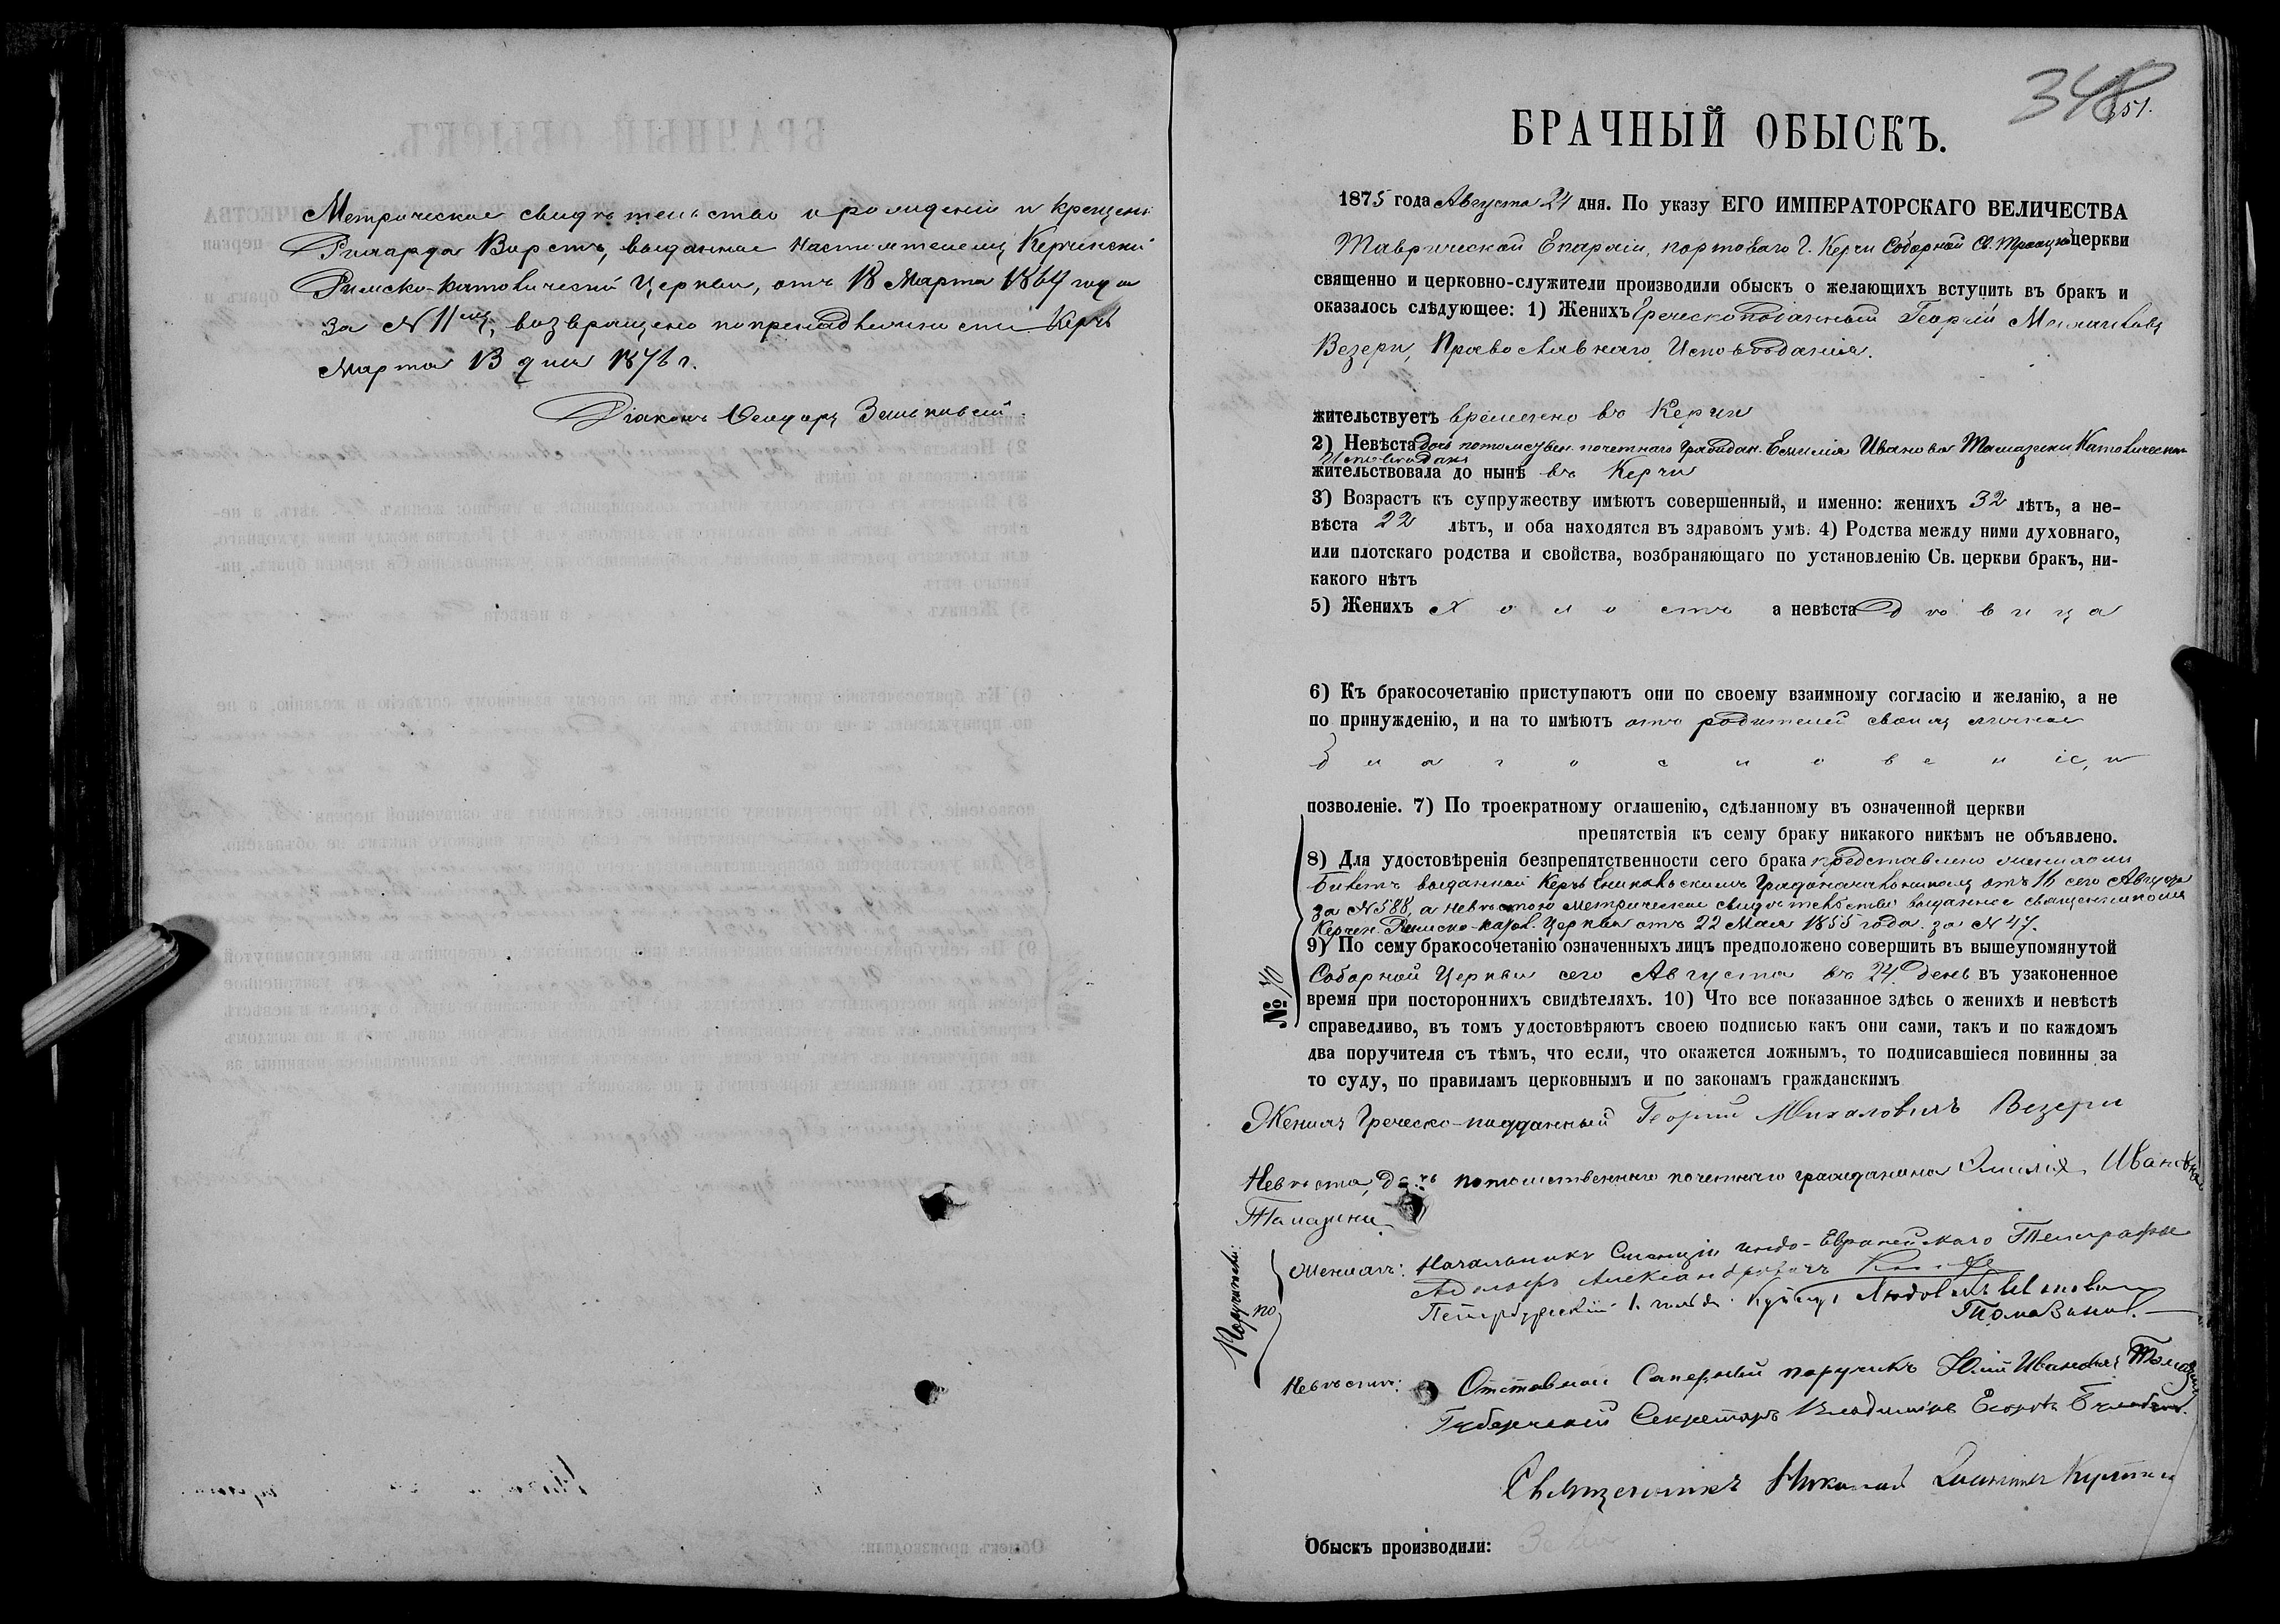 Метрическое свидѣтельство о рожденіи и крещеніи
Ричарда Вирстъ, выданное Настоятелемъ Керчинской
Римско-Католической Церкви, отъ 18 Марта 1864 года
за N 11мъ, возвращено по принадлежности Керчь
Марта 13 дня 1876 г.
Діаконъ Ѳеодоръ
348
351.
БРАЧНЫЙ ОБЫСКЪ.
1875 года Августа 24 дня. По указу ЕГО ИМПЕРАТОРСКАГО ВЕЛИЧЕСТВА
Таврической Епархіи, портоваго г. Керчи Соборной Св. Троицкой церкви
священно и церковно-служители производили обыскъ о желающихъ вступить въ бракъ и
оказалось слѣдующее: 1) Женихъ Греческоподанный Георгій Михаиловъ
Везери, Православнаго Исповѣданія.
жительствуетъ временно въ Керчи
2) Невѣста дочь потомствен. почетнаго Граждан. Емилія Иванова Томазини Католическаго
Исповѣданія
жительствовала до нынѣ въ Керчи
3) Возрастъ къ супружеству имѣютъ совершенный, и именно: женихъ 32 лѣтъ, а не-
вѣста 22 лѣтъ, и оба находятся въ здравомъ умѣ. 4) Родства между ними духовнаго,
или плотскаго родства и свойства, возбраняющаго по установленію Св. церкви бракъ, ни-
какого нѣтъ
5) Женихъ холостъ а невѣста дѣвица
6) Къ бракосочетанію приступаютъ они по своему взаимному согласію и желанію, а не
по принужденію, и на то имѣютъ отъ родителей своихъ личное
благословеніе, и
позволеніе. 7) По троекратному оглашенію, сдѣланному въ означенной церкви
препятствія къ сему браку никакого никѣмъ не объявлено.
8) Для удостовѣренія безпрепятственности сего брака представлено женихомъ
билетъ выданный Керчь Еникольскимъ Градоначальникомъ отъ 16 сего Августа
за N 588, а невѣстою метрическое свидѣтельство выданное священникомъ
Керчен. Римско-Катол. Церкви отъ 22 Мая 1855 года за N 47.
9) По сему бракосочетанію означенныхъ лицъ предположено совершить въ вышеупомянутой
Соборной Церкви сего Августа въ 24. день въ узаконенное
время при постороннихъ свидѣтеляхъ. 10) Что все показанное здѣсь о женихѣ и невѣстѣ
справедливо, въ томъ удостовѣряютъ своею подписью какъ они сами, такъ и по каждомъ
два поручителя съ тѣмъ, что если, что окажется ложнымъ, то подписавшіеся повинны за
то суду, по правиламъ церковнымъ и по законамъ гражданскимъ
№ 40
Женихъ Греческо-подданный Георгій Михаловичъ Везери
Невѣста, дочь потомственнаго почетнаго гражданина Эмилія Ивановна
Томазини
Поручители:
по
Женихѣ: Начальникъ Станціи Индо-Европейскаго Телеграфа
Адольфъ Александровичъ
Петербургскій 1. гильд. купецъ Людовикъ Ивановичъ
Томазини.
Невѣстѣ: Отставной Саперный поручикъ Юлій Ивановичъ Томазини
Губернскій Секретарь Владиміръ Егоровъ
Священникъ Николай
Обыскъ производили: